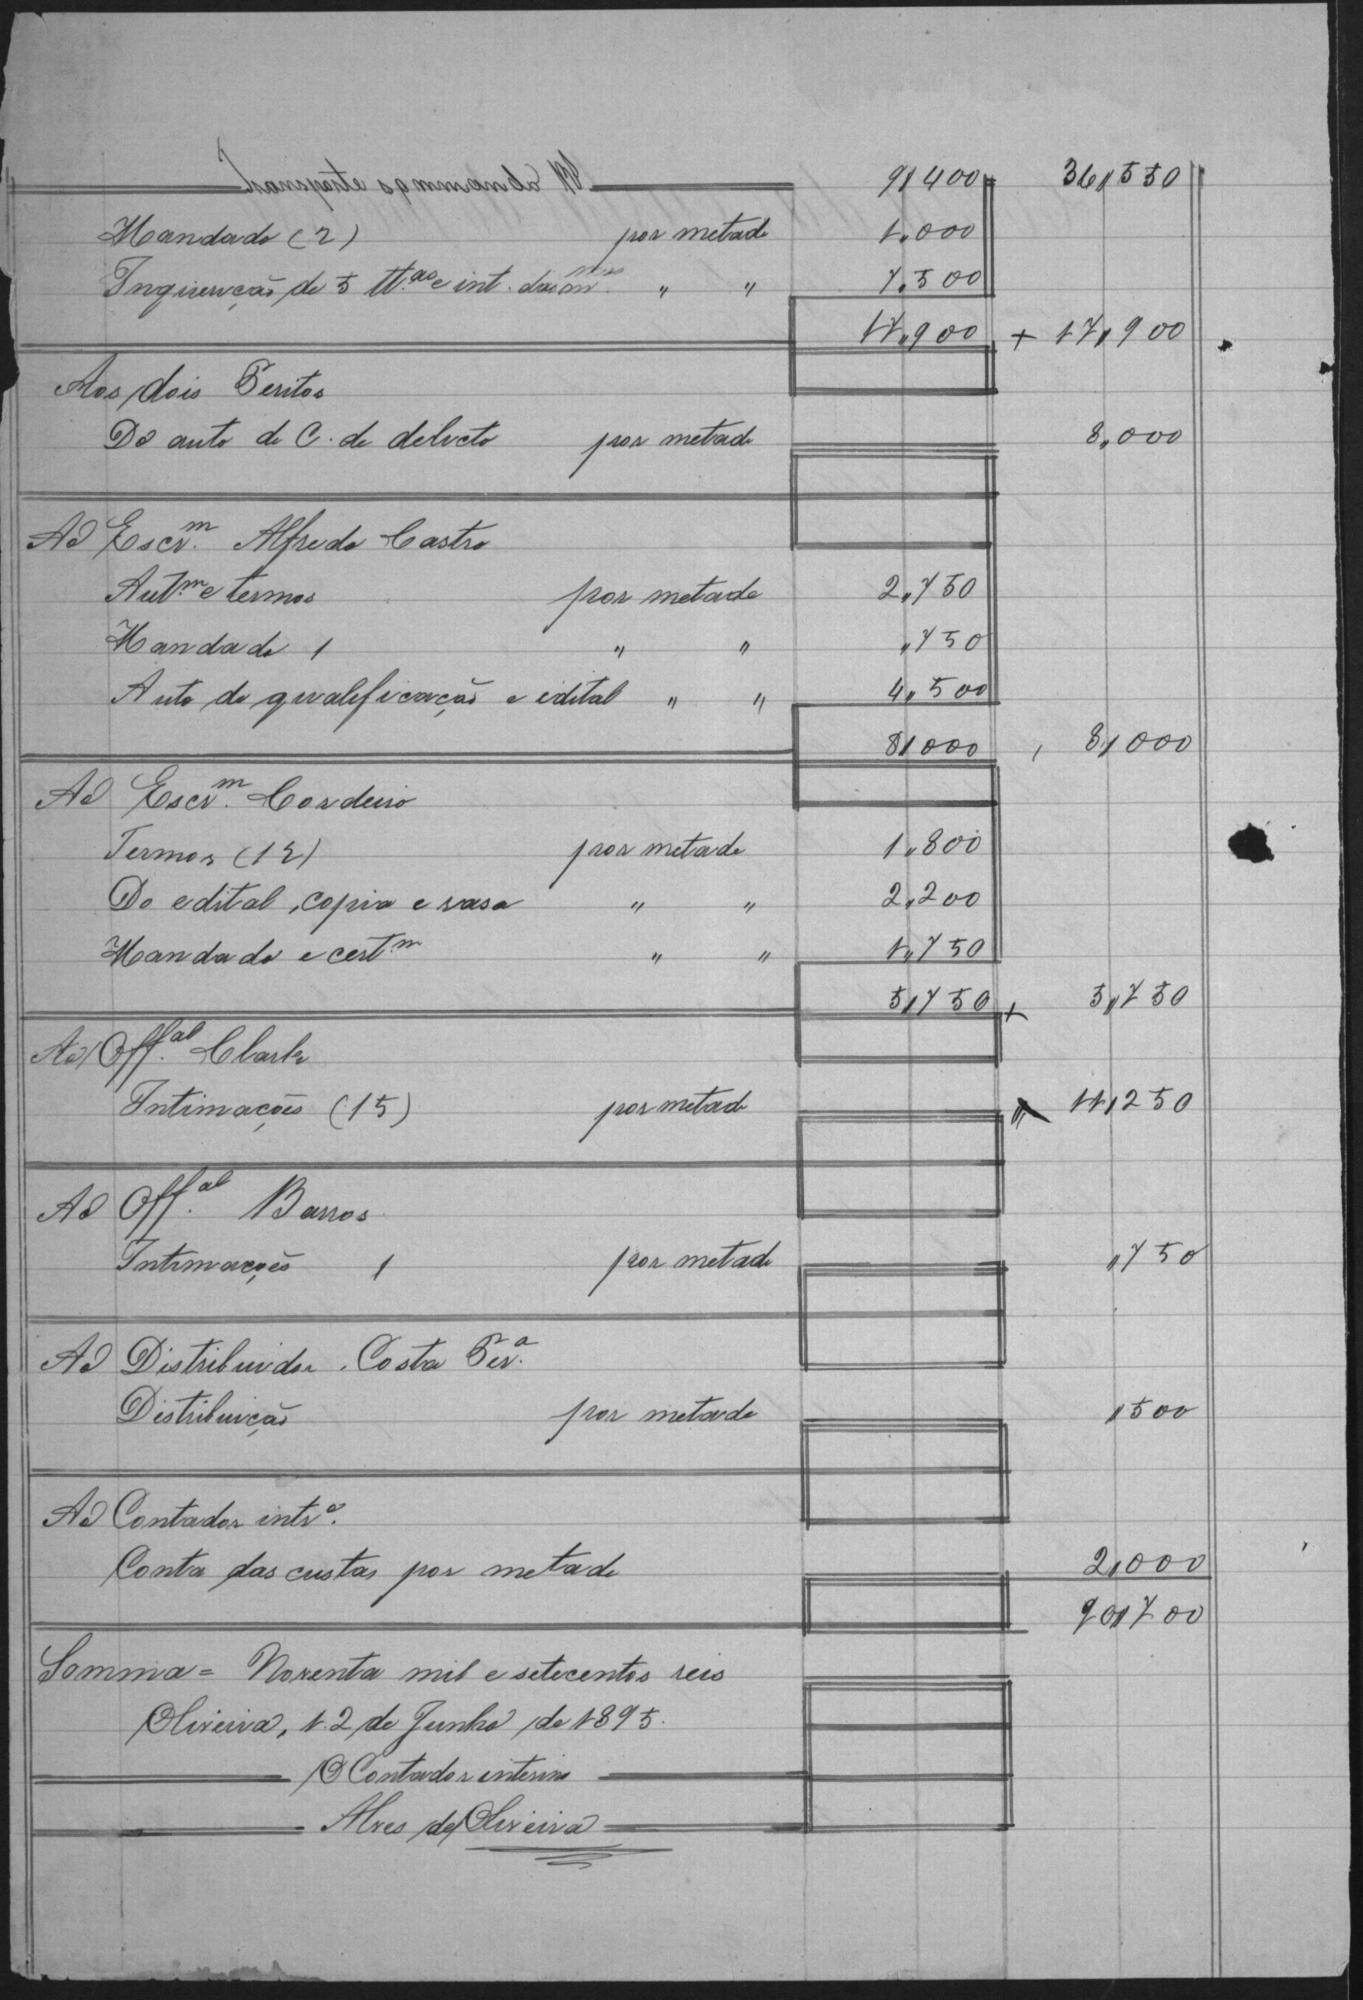 Transporte e sommando 9$400 36$550
Mandado (2) por metade 1.000
Inquirição de 5 tt.as e int. das m.mas " " 7.500
17,900 + 17,900
Aos dois Peritos
Do auto de C. de delicto por metade 8,000
Ao Escr.m Alfredo Castro
Aut.m e termos por metade 2,750
Mandado 1 " " ,750
Auto de qualificação e edital " " 4,500
8$000 8$000
Ao Escr.m Cordeiro
Termos (12) por metade 1,800
Do edital, copia e rasa " " 2,200
Mandado e cert.m " " 1,750
5$750 + 5$750
Ao Off.al Clark
Intimações (15) por metade 11$250
Ao Off.al Barros
Intimações 1 por metade $750
Ao Distribuidor Costa Per.a
Distribuição por metade $500
Ao Contador int.o
Conta das custas por metade 2$000
90$700
Somma = Noventa mil e setecentos reis
Oliveira, 12 de Junho de 1895.
O Contador interino
Alves de Oliveira